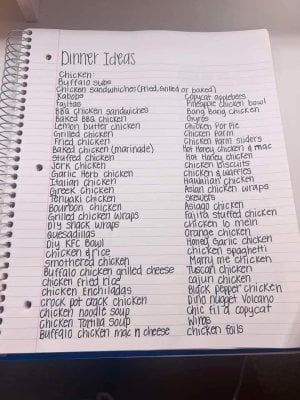 Dinner Ideas
Chicken:
Buffalo subs
Chicken sandwhiches (Fried, Grilled or baked)
Kabobs
Fajitas
BBQ chicken sandwiches
Baked BBQ chicken
Lemon butter chicken
Grilled chicken
Fried chicken
Baked chicken (marinade)
Stuffed chicken
Jerk chicken
Garlic Herb chicken
Italian chicken
Greek chicken
Teriyaki chicken
Bourbon chicken
Grilled chicken wraps
DIY snack wraps
Quesadillas
DIY KFC Bowl
Chicken & rice
Smothered chicken
Buffalo chicken grilled cheese
Chicken fried rice
Chicken Enchiladas
Crock pot crack chicken
Chicken noodle soup
Chicken Tortilla soup
Buffalo chicken mac n cheese
Copycat applebees
Pineapple chicken bowl
Bang Bang chicken
Gyros
Chicken Pot Pie
Chicken Parm
Chicken Parm sliders
Hot Honey chicken & mac
Hot Honey chicken
Chicken biscuits
Chicken & waffles
Hawaiian chicken
Asian chicken wraps
Skewers
Asiago chicken
Fajita stuffed chicken
Chicken lo mein
Orange chicken
Honey Garlic chicken
Chicken spaghetti
Marry me chicken
Tuscan chicken
Cajun chicken
Black pepper chicken
Dino nugget volcano
Chic fil a copycat
Wings
Chicken foils